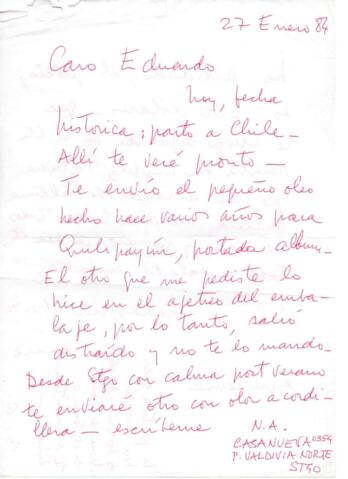 27 Enero 84
Caro Eduardo
hoy, fecha
historica: parto a Chile —
Allí te veré pronto —
Te envío el pequeño oleo
hecho hace varios años para
Quilipayún, portada album —
El otro que me pediste lo
hice en el ajetreo del emba-
laje, por lo tanto, salió
distraído y no te lo mando —
Desde Stgo con calma post verano
te enviaré otro con olor a cordi-
llera — escríbeme N.A.
CASANUEVA 0354
P. VALDIVIA NORTE
STGO